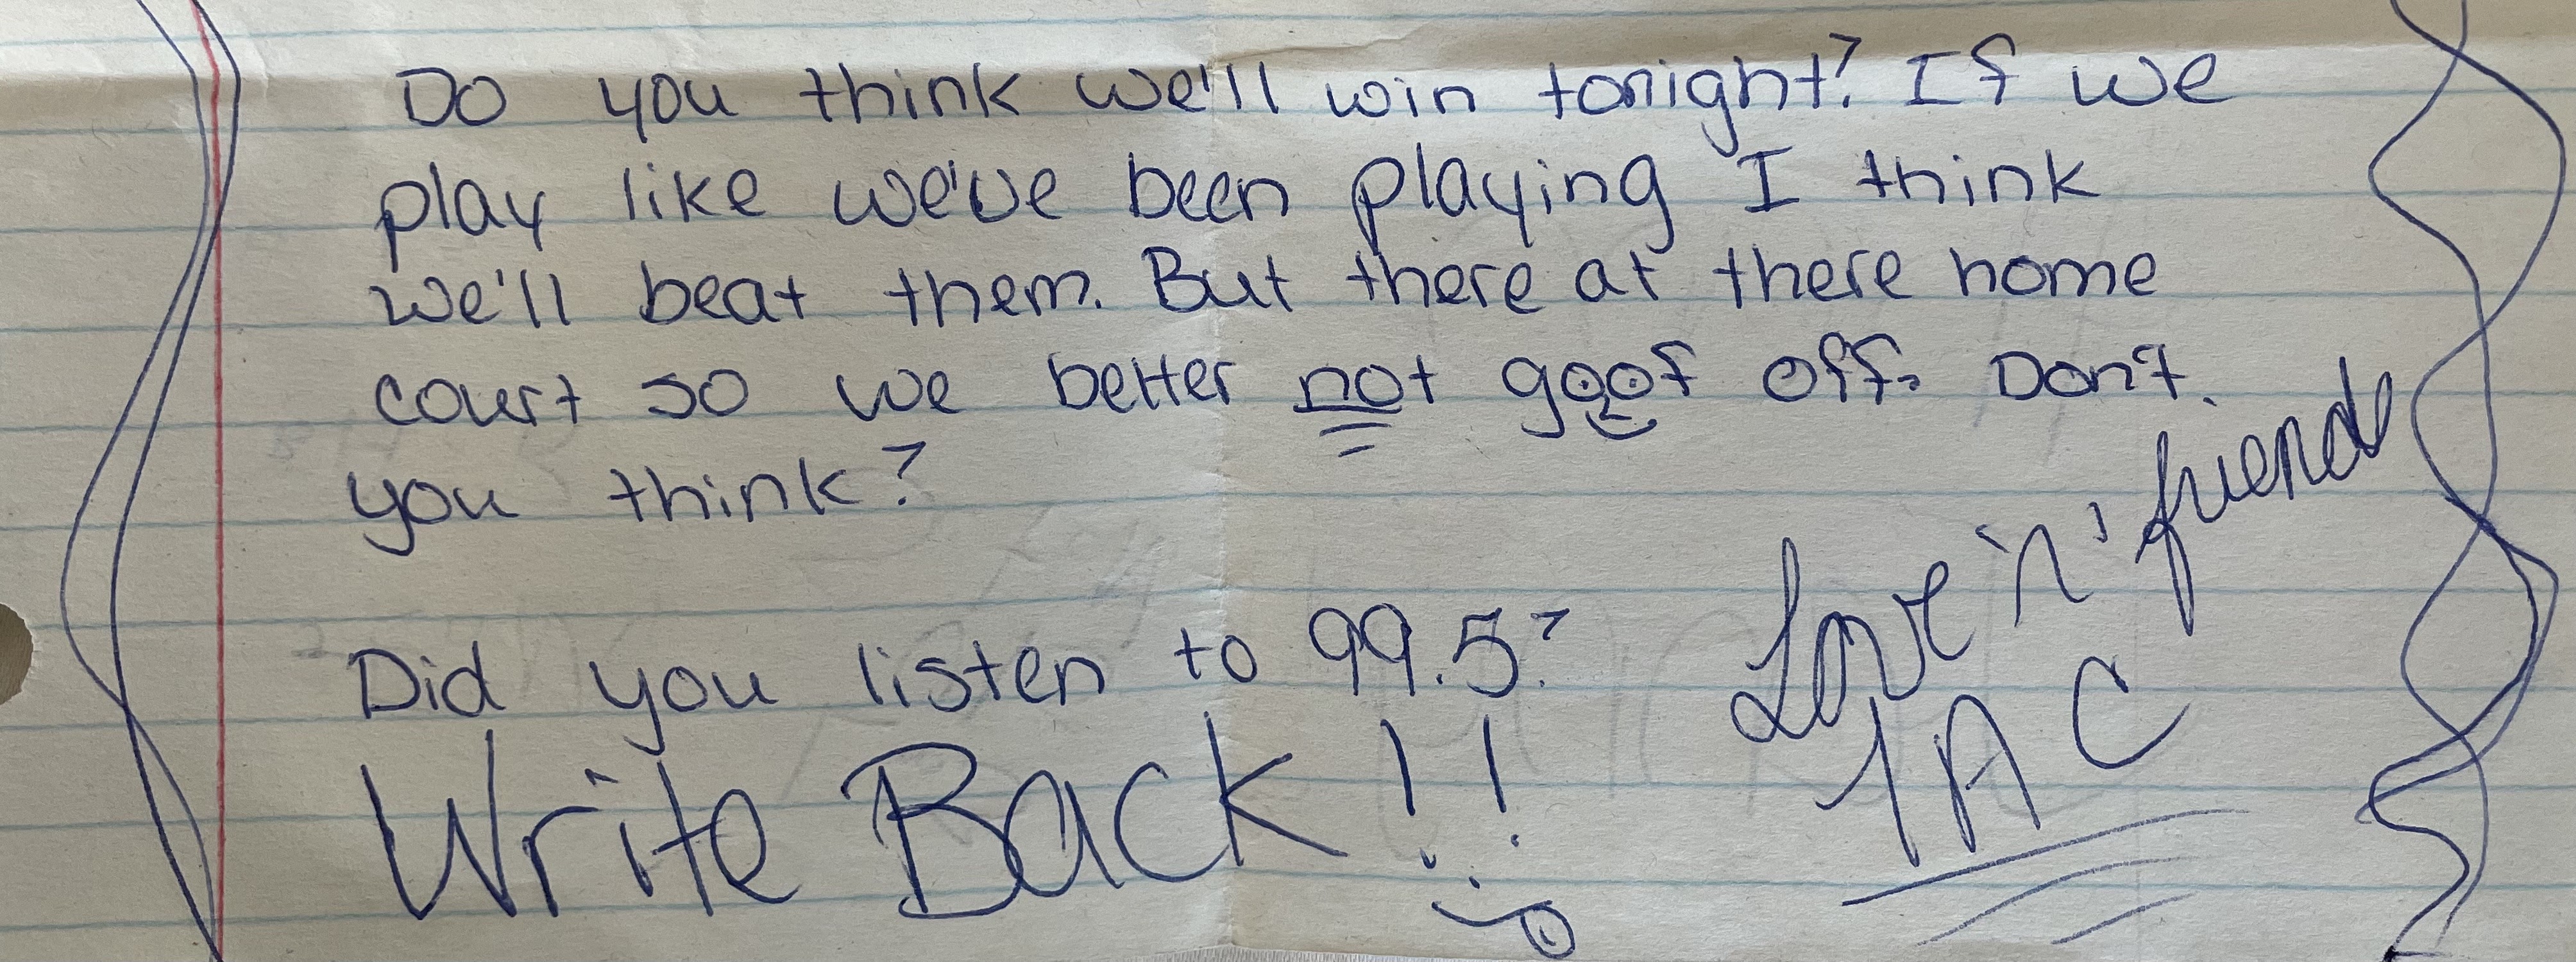 Do you think we'll win tonight? If we
play like we've been playing I think
we'll beat them. But there at there home
court so we better not goof off. Don't
you think?
Did you listen to 99.5?
Write Back!!
Love 'n' friends
TAC